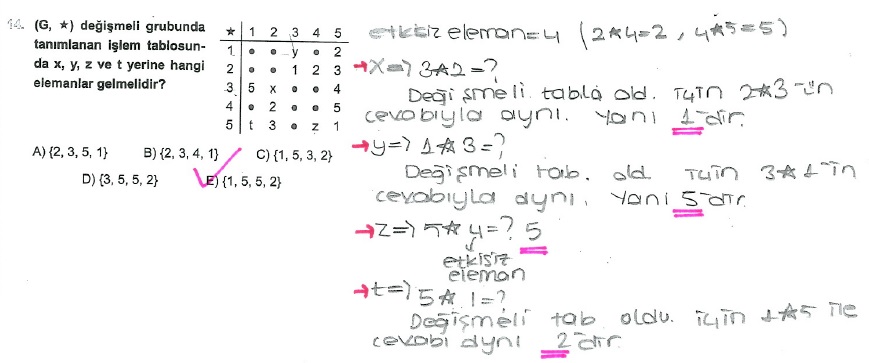 14. (G, ★) değişmeli grubunda
tanımlanan işlem tablosun-
da x, y, z ve t yerine hangi
elemanlar gelmelidir?
★ 1 2 3 4 5
1 • • y • 2
2 • • 1 2 3
3 5 x • • 4
4 • 2 • • 5
5 t 3 • z 1
A) {2, 3, 5, 1} B) {2, 3, 4, 1} C) {1, 5, 3, 2}
D) {3, 5, 5, 2} E) {1, 5, 5, 2}
etkisiz eleman=4 (2★4=2, 4★5=5)
→X=> 3★2=?
Değişmeli tabla old. için 2★3'ün
cevabıyla aynı. Yani 1'dir.
→y=> 1★3=?
Değişmeli tab. old. için 3★1'in
cevabıyla aynı. Yani 5'dir.
→z=> 5★4=? 5
↓
etkisiz
eleman
→t=> 5★1=?
Değişmeli tab oldu. için 1★5 ile
cevabı aynı 2'dir.